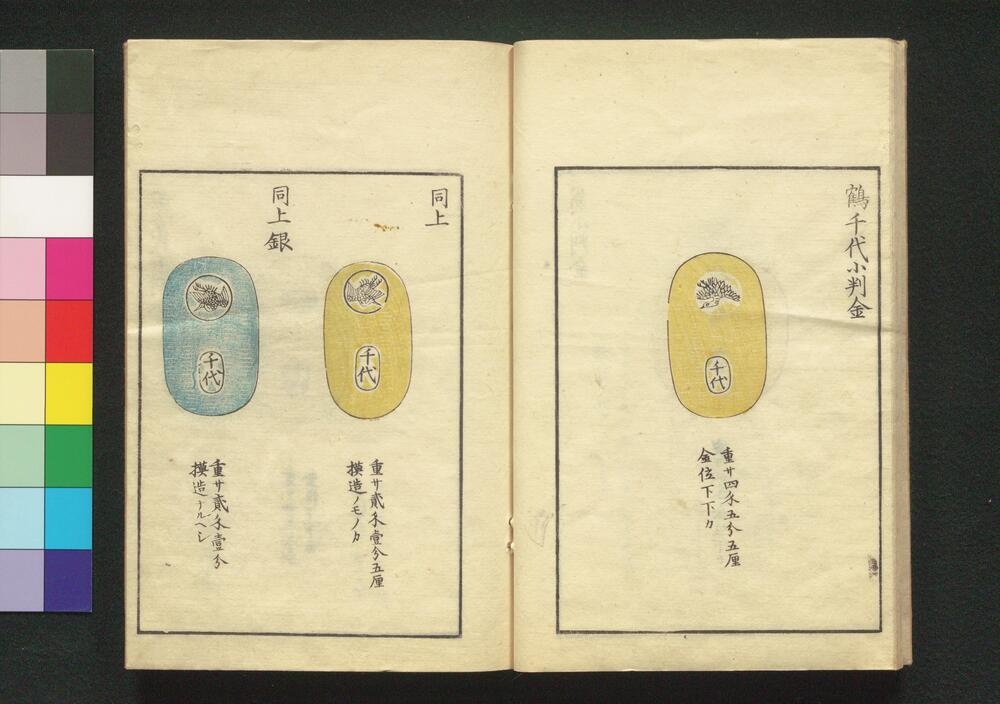 鶴千代小判金
千代
重廿四匁五分五厘
金位下下カ
同上
千代
重廿貳匁壹分五厘
摸造ノモノカ
同上銀
千代
重廿貳匁壹分
摸造ナルヘシ